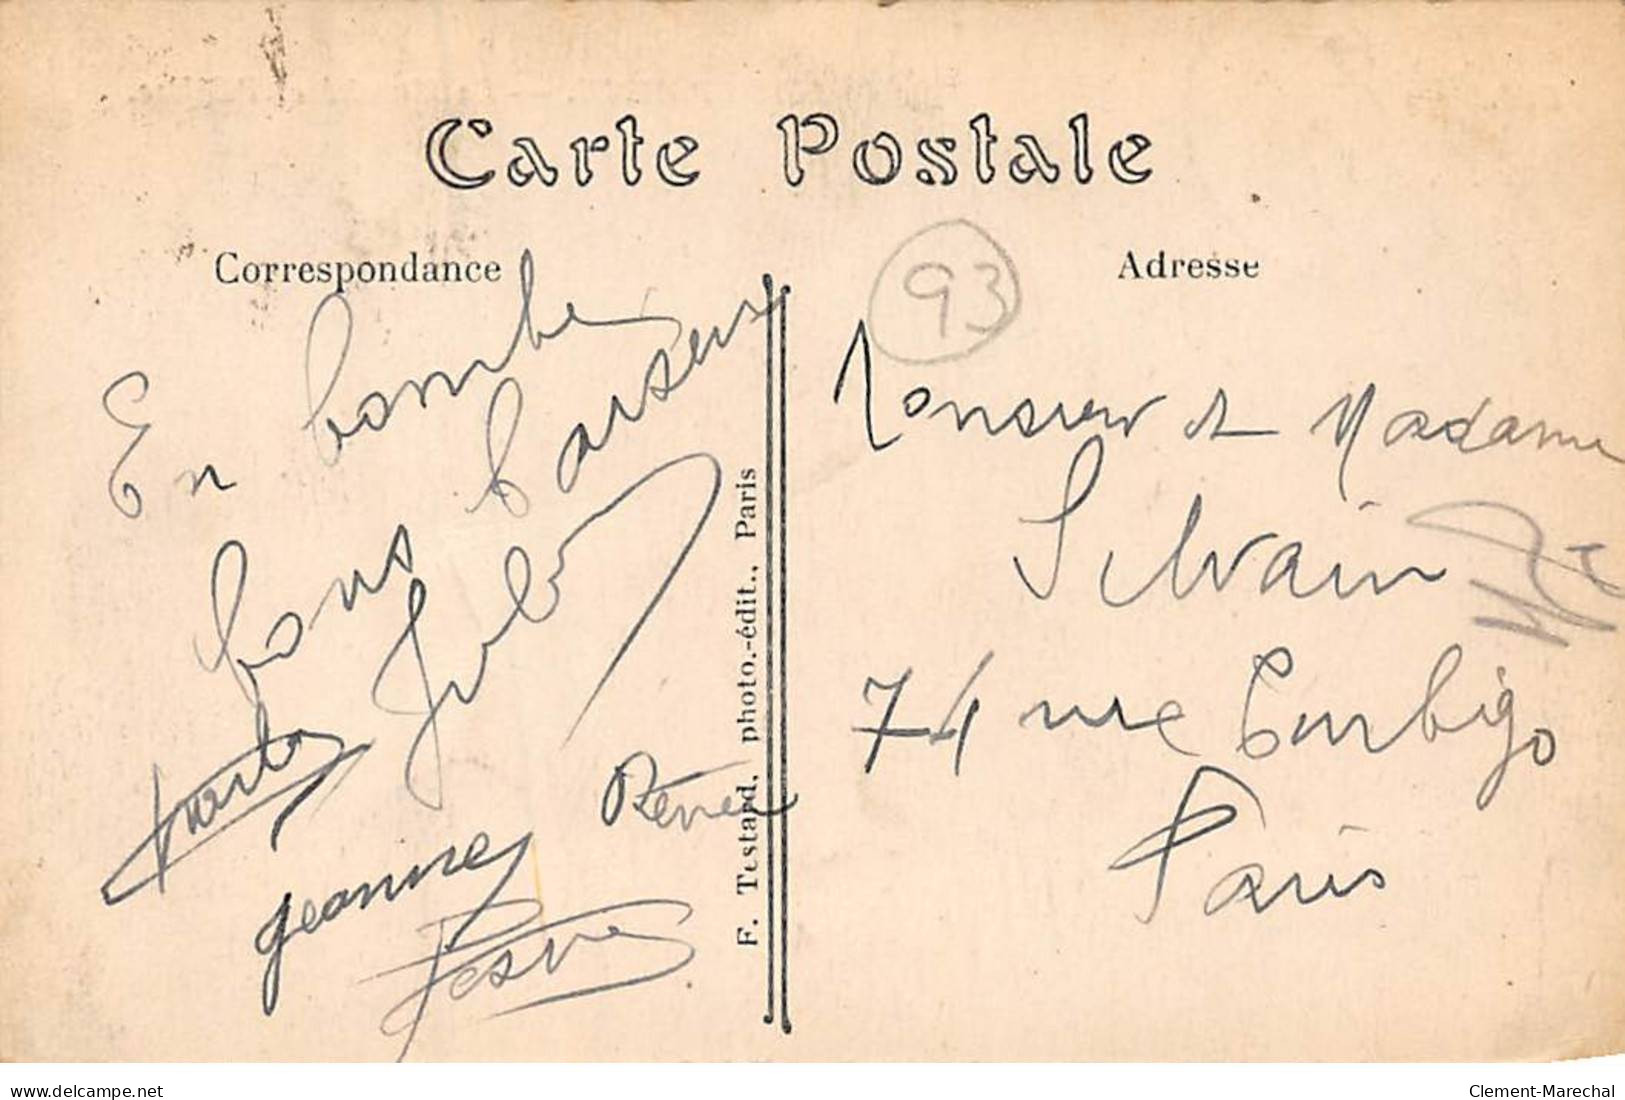 Carte Postale
Correspondance
En bombe
bons baisers
Jeanne
Renée
F. Testard, photo.-édit., Paris
93
Adresse
Monsieur et Madame
Silvain
74 rue Turbigo
Paris
www.delcampe.net
Clement-Marechal